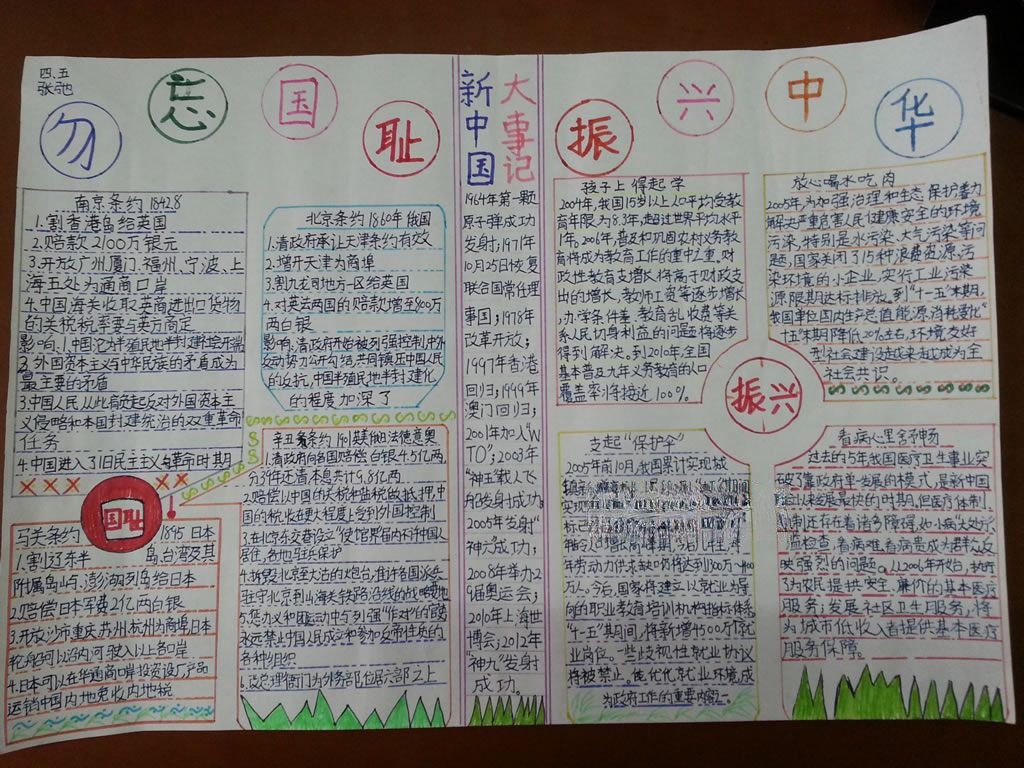 四、五
张弛
勿忘国耻
振兴中华
南京条约 1842.8
1.割香港岛给英国
2.赔款2100万银元
3.开放广州、厦门、福州、宁波、上
海五处为通商口岸
4.中国海关收取英商进出口货物
的关税税率要与英方商定
影响:1.中国沦为半殖民地半封建社会开端
2.外国资本主义与中华民族的矛盾成为
最主要的矛盾
3.中国人民从此肩负起反对外国资本主
义侵略和本国封建统治的双重革命
任务
4.中国进入了旧民主主义革命时期
国耻
马关条约 1895 日本
1.割辽东半岛台湾及其
附属岛屿、澎湖列岛给日本
2.赔偿日本军费2亿两白银
3.开放沙市重庆苏州杭州为商埠日本
轮船可以沿内河驶入以上各口岸
4.日本可以在华通商口岸投资设厂产品
运销中国内地免收内地税
北京条约 1860年俄国
1.清政府承让天津条约有效
2.增开天津为商埠
3.割九龙司地方一区给英国
4.对英法两国的赔款增至800万
两白银
影响.清政府开始被列强控制,中外
反动势力公开勾结,共同镇压中国人民
的反抗,中国半殖民地半封建化
的程度加深了
辛丑条约 1901英美俄日法德意奥
1.清政府向各国赔偿白银4.5亿两,
分39年还清本息共计9.8亿两
2.赔偿以中国的关税和盐税做抵押,中
国的税收在更大程度上受到外国控制
3.在北京东交巷设立“使馆界”馆内不许中国人
居住,各地驻兵保护
4.拆毁北京至大沽的炮台,准许各国派兵
驻守北京到山海关铁路沿线的战略要地
永远禁止中国人民成立和参加反帝性质的
各种组织
6.改总理衙门为外务部,位居六部之上
新中国
大事记
1964年第一颗
原子弹成功
发射;1971年
10月25日恢复
联合国常任理
事国;1978年
改革开放;
1997年香港
回归;1999年
澳门回归;
2001年加入“W
TO”;2003年
“神五”载人飞
船发射成功;
2005年发射“
神六”成功;
2008年举办2
9届奥运会;
2010年上海世
博会;2012年
“神九”发射
成功。
孩子上得起学
2004年,我国15岁以上人口平均受教
育年限为8.3年,超过世界平均水平
1年。2006年,普及和巩固农村义务教
育将成为教育工作的重中之重.对
政性教育支增长将高于财政支
出的增长、教师工资等逐步增长
,办学条件差、教育乱收费等关
系人民切身利益的问题将逐步
得到解决。到2010年,全国
基本普及九年义务教育的人口
覆盖率将接近100%。
放心喝水吃肉
2005年,为加强治理和生态保护着力
解决严重危害人民健康安全的环境
污染,特别是水污染、大气污染等问
题,国家关闭了15种浪费资源、污
染环境的小企业,实行工业污染
源限期达标排放。到“十一五”末期,
我国单位国内生产总值能源消耗要比“
十五”末期降低20%左右,环境友好
型社会建设越来越成为全
社会共识。
振兴
支起“保护伞”
2005年前10月,我国累计实现城
年劳动力供求缺口仍将达到1300万-1400
万人。今后,国家将建立以就业为导
向的职业教育培训机构指标体系
“十一五”期间,将新增4500万个就
业岗位,一些歧视性就业协议
将被禁止。优化就业环境,成
为政府工作的重要内容。
看病心里舒畅
过去的5年我国医疗卫生事业突
破了靠政府单一发展的模式,是新中国
成立以来发展最快的时期,但医疗体制、
机制还存在着诸多障碍,如小病大处方、
滥检查,看病难看病贵成为群众反
映强烈的问题。从2006年开始,政府
为农民提供安全、廉价的基本医疗
服务;发展社区卫生服务,将
为城市低收入者提供基本医疗
服务保障。